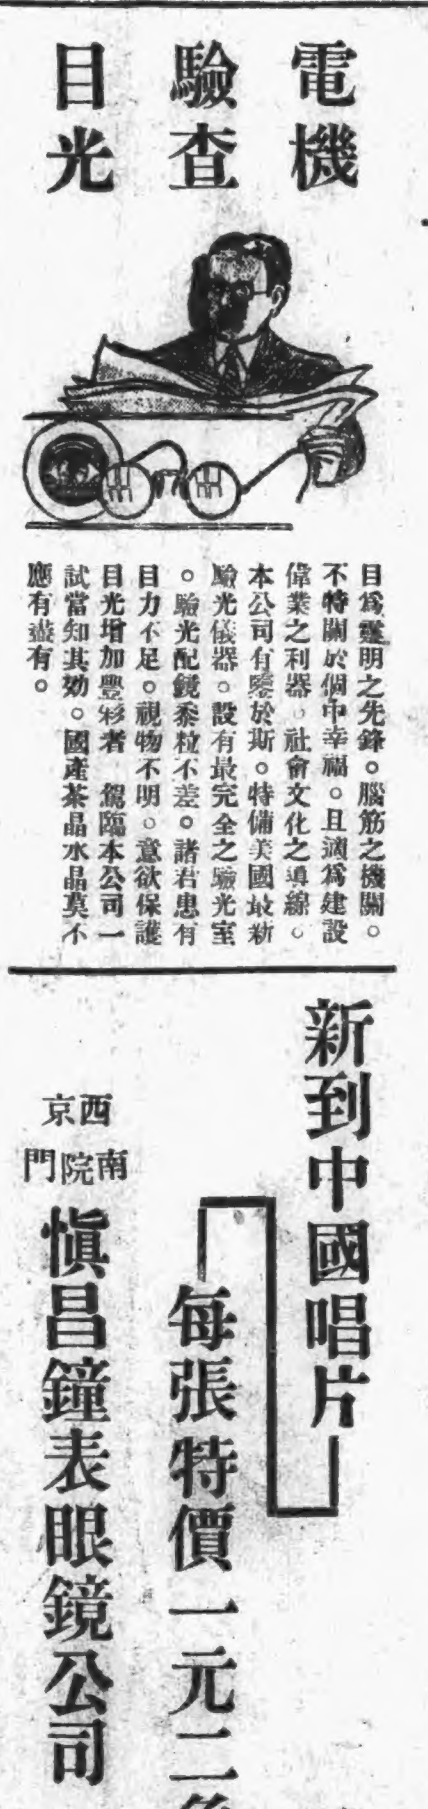 電機
驗查
目光
目爲靈明之先鋒。腦筋之機關。
不特關於個中幸福。且適爲建設
偉業之利器。社會文化之導線。
本公司有鑒於斯。特備美國最新
驗光儀器。設有最完全之驗光室
。驗光配鏡黍粒不差。諸君患有
目力不足。視物不明。意欲保護
目光增加豐彩者 駕臨本公司一
試當知其効。國產茶晶水晶莫不
應有盡有。
新到中國唱片
每張特價一元二角
西京
南院門
愼昌鐘表眼鏡公司